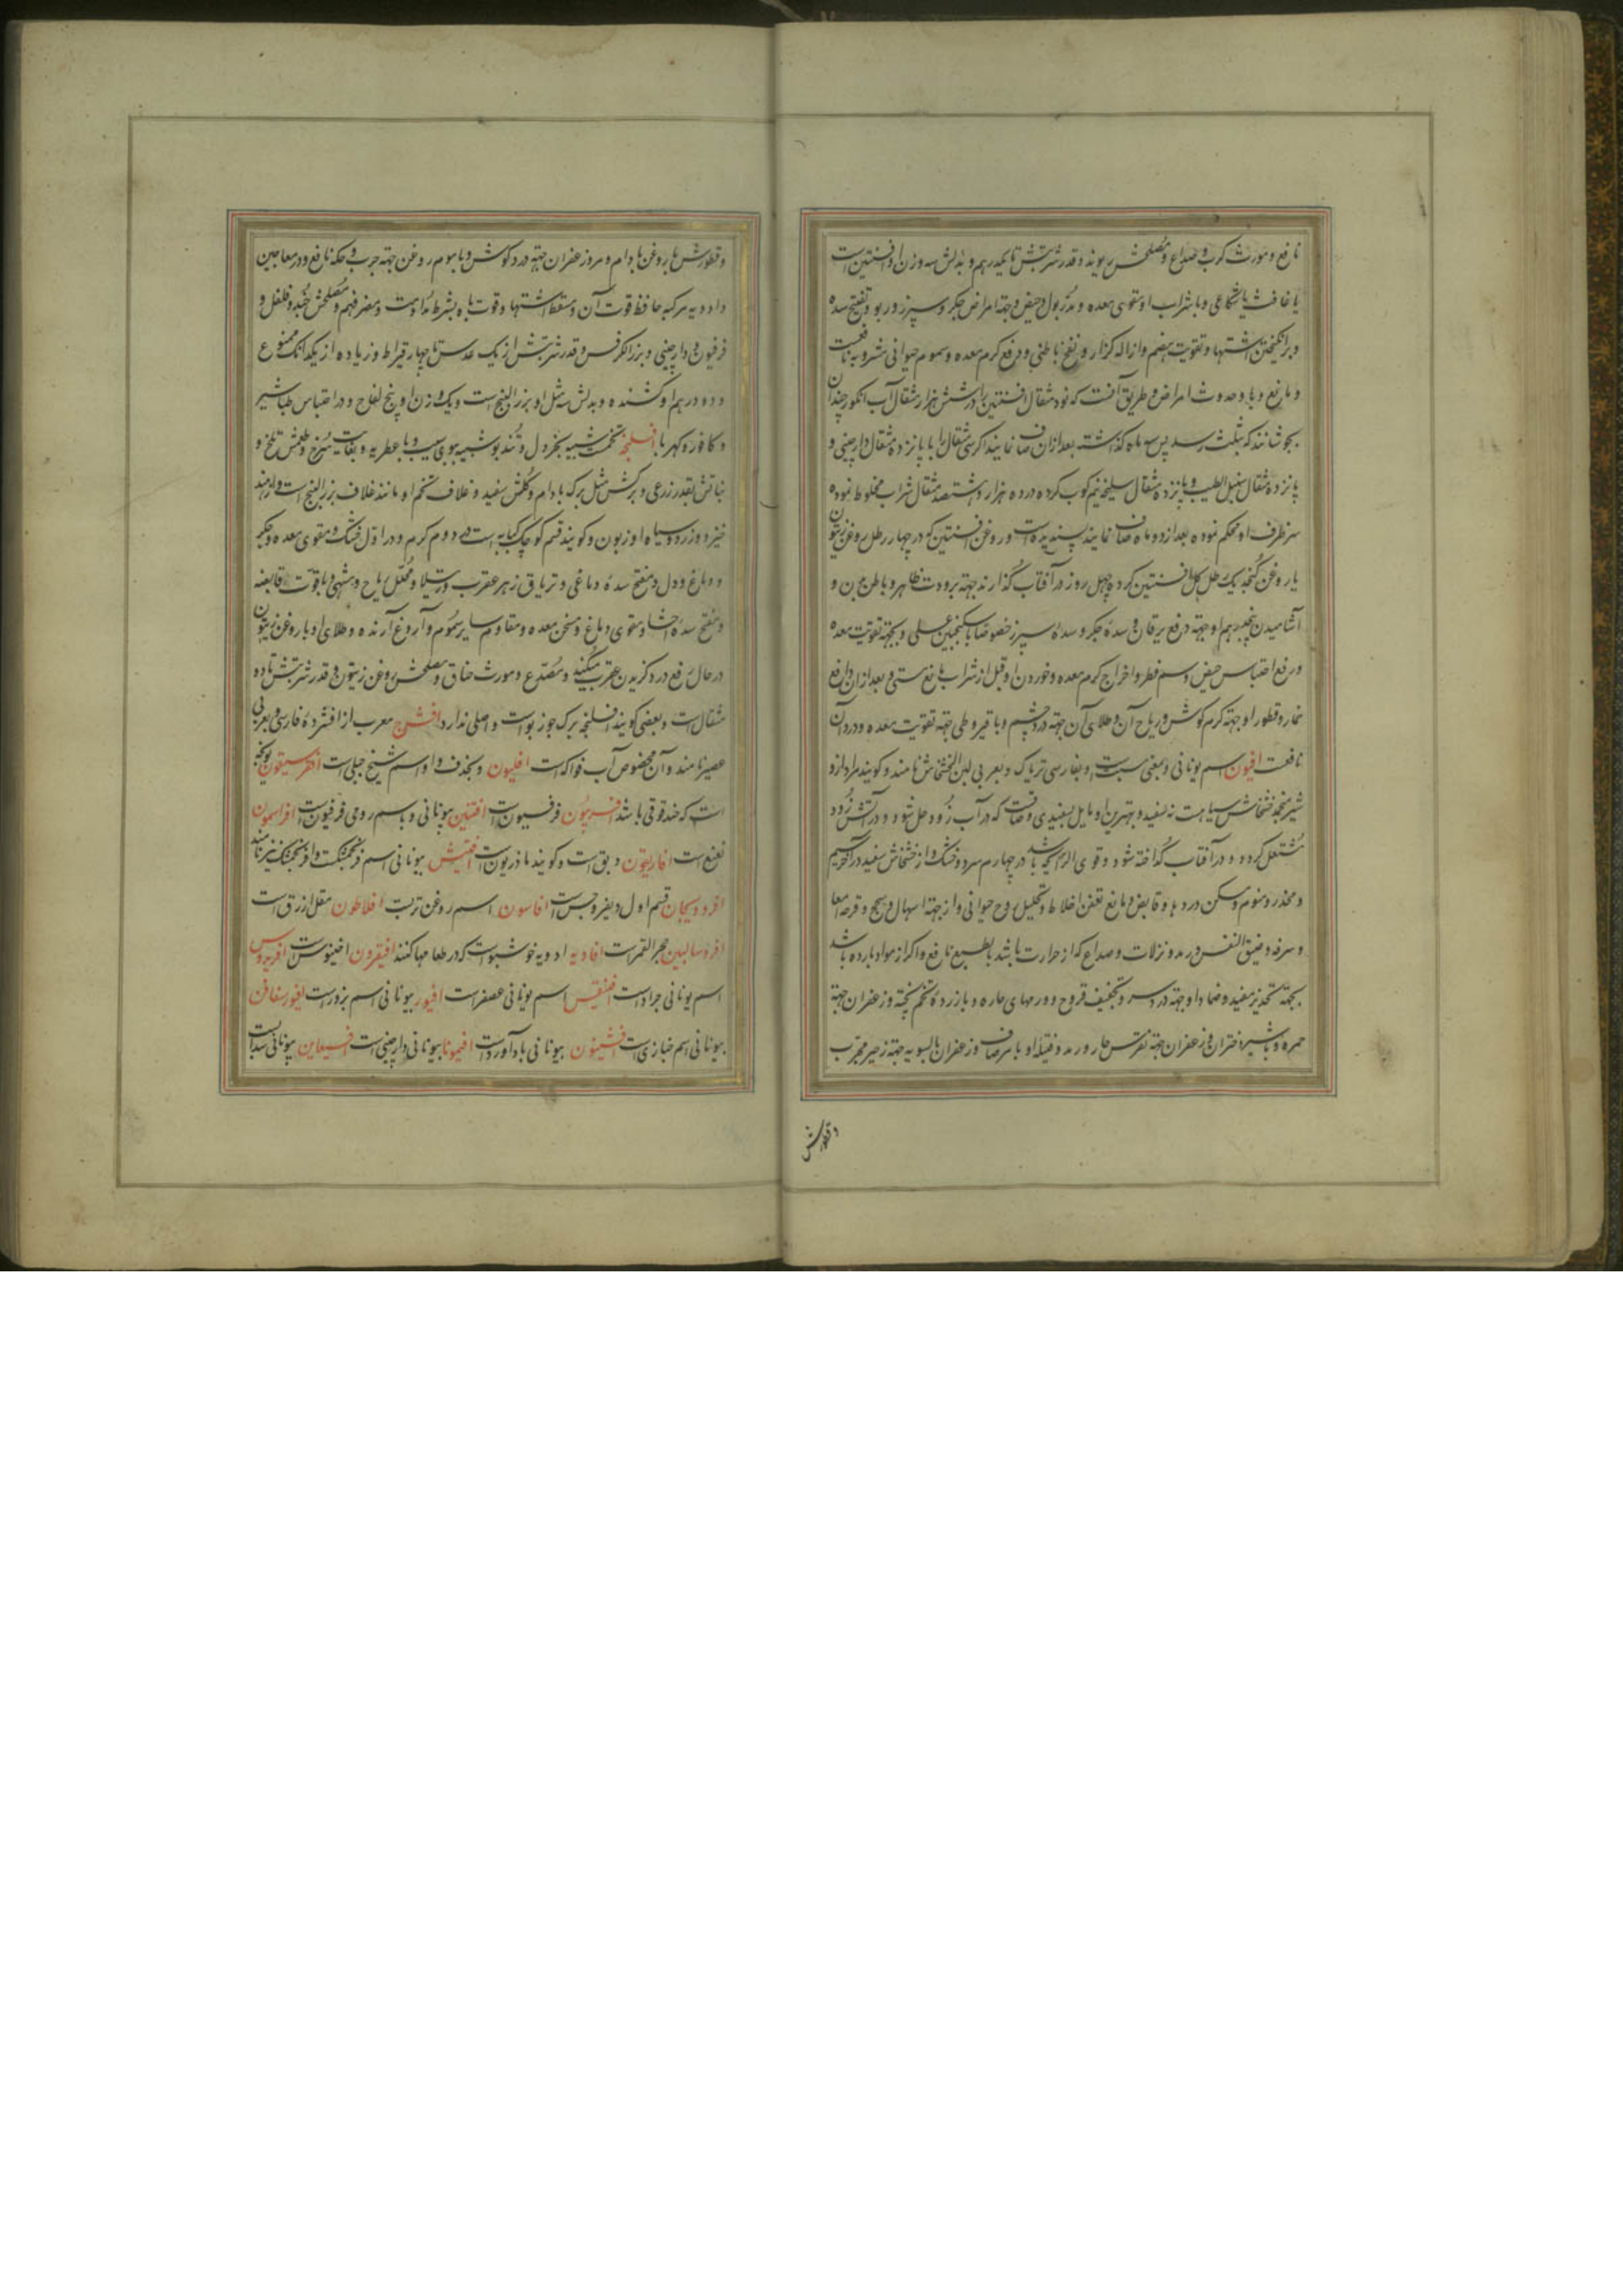 نافع و مورث کرب و صداع و مصلحش ریوند و قدر شربتش تا یکدرهم و بدلش سه وزن او افسنتین است
یا غافث یا شکاعی و با شراب او مقوی معده و مدر بول و حیض و جهة امراض جکر و سپرز و ربو و تفتیح سده
و برانکیختن اشتها و تقویت هضم و ازاله کزار و نفخ باطنی و دفع کرم معده و سموم حیوانی مشروبه نافعست
و مانع وبا و حدوث امراض و طریق آنست که نود مثقال افسنتین را در شش هزار مثقال آب انکور چندان
بجوشانند که بثلث رسد پس سه ماه کذاشته بعد ازان صاف نمایند اکر سی مثقال را با پانزده مثقال دارچینی و
پانزده مثقال سنبل الطیب و پانزده مثقال سلیخه نیم کوب کرده در ده هزار و هشتصد مثقال شراب مخلوط نموده
سر ظرف او محکم نموده بعد از دو ماه صاف نمایند پسندیده است و روغن افسنتین که در چهار رطل روغن زیتون
یا روغن کنجد یک رطل کل افسنتین کرده چهل روز در آفتاب کذارند جهة برودت ظاهر و باطن بدن و
آشامیدن پنجدرهم او جهة دفع یرقان و سدۀ جکر و سدۀ سپرز خصوصا با سکنجبین عسلی و بجهة تقویت معده
و رفع احتباس حیض و سم فطر و اخراج کرم معده و خوردن او قبل از شراب مانع مستی و بعد ازان دافع
خمار و قطور او جهة کرم کوش و ریاح آن و طلای آن جهة درد چشم و با قیروطی جهة تقویت معده و درد آن
نافعست افیون اسم یونانی و بمعنی مسبت است و بفارسی تریاک و بعربی لبن الخشخاش نامند و کویند مراد ازو
شیر منجمد خشخاش سیاهست نه سفید و بهترین او مایل بسفیدی و صافست که در آب زود حل شود و در آتش زود
مشتعل کردد و در آفتاب کداخته شود و قوی الرایحه باشد در چهارم سرد و خشک و از خشخاش سفید در آخر سیم
و مخدر و منوم و مسکن دردها و قابض و مانع تعفن اخلاط و تحلیل روح حیوانی و از جهة اسهال و سحج و قرحه امعا
و سرفه و ضیق النفس و رمد و نزلات و صداع که از حرارت باشد بالطبع نافع و اکر از مواد بارده باشد
بجهة تخدیر مفید و ضماد او جهة درد سر و تجفیف قروح و ورمهای حاره و با زردۀ تخم پخته و زعفران جهة
حمره و با شیر دختران و زعفران جهة نقرس حار و رمد و فتیله او با مرصاف و زعفران بالسویه جهة زحیر مجرب
و قطورش
و قطورش با روغن بادام و مر و زعفران جهة درد کوش و با موم روغن جهة جرب و حکه نافع و در معاجین
و ادویه مرکبه حافظ قوت آن و مسقط اشتها و قوت باه بشرط مداومت و مضر فهم و مصلحش جند و فلفل و
فرفیون و دارچینی و بزرالکرفس و قدر شربتش از یک عدس تا چهار قیراط و زیاده از یکدانک ممنوع
و دو درهم او کشنده و بدلش سه مثل او بزرالبنج است و یک وزن او بیخ لفاح و در احتباس طباشیر
و کافور و کهربا افلنجه تخمیست شبیه بخردل و تند بو شبیه ببوی سیب و با عطریه و بغایت سرخ و طعمش تلخ و
نباتش بقدر زرعی و برکش مثل برک بادام و کلش سفید و غلاف تخم او مانند غلاف بزرالبنج است و از هند
خیزد و زرد و سیاه او زبون و کویند قسم کوچک کبابه است در دوم کرم و در اول خشک و مقوی معده و جکر
و دماغ و دل و مفتح سدۀ دماغی و تریاق زهر عقرب و رتیلا و محلل ریاح و مشهی و با قوت قابضه
و مفتح سدۀ احشا و مقوی دماغ و مسخن معده و مقاوم سایر سموم و آروغ آرنده و طلای او با روغن زیتون
در حال رفع درد کزیدن عقرب میکند و مصدع و مورث خناق و مصلحش روغن زیتون و قدر شربتش تا دو
مثقال است و بعضی کویند افلنجه برک جوز بواست و اصلی ندارد افشرج معرب از افشردۀ فارسی و بعربی
عصیر نامند و آن مخصوص آب فواکه است افلیون و بحذف واو اسم شیخ جبلی است
است که حندقوقی باشد افربیون فرفیون است افتنین بیونانی و باسم رومی فرفیون است افراسیون
نعنع است افاریقون دبق است و کویند ماذریون است افتیش بیونانی اسم فرنجمشکست و افرنجمشک نیز نامند
قسم اول دیفروجس است افاسون اسم روغن تربت افلاطون مقل ازرق است
افروسالینن حجر القمر است افاویه ادویه خوشبوست که در طعامها کنند افیقرون افینوس است
اسم یونانی جراد است افنیقس اسم یونانی عصفر است افیور بیونانی اسم بزور است
بیونانی اسم خبازی است بیونانی بادآورد است افیمونا بیونانی دارچینی است بیونانی سداب است